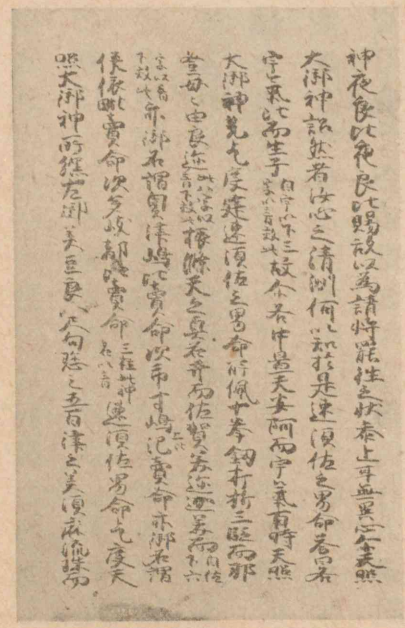 神夜良比夜良比賜故以為請将罷往之状参上耳無異心尒天照
大御神詔然者汝心之清明何以知於是速須佐之男命答曰各
宇氣比而生子自宇以下三字以音下效此故尒各中置天安河而宇氣布時天照
大御神先乞度建速須佐之男命所佩十拳釼打折三段而那
登母々由良迩此八字以音下效此振滌天之真名井而佐賀美迩迦美而自佐下六
字以音下效此亦御名謂奥津嶋比賣命次市寸嶋比賣命亦御名謂
狭依毗賣命次多岐都比賣命三柱此神名以音速須佐男命乞度天
照大御神所纏左御美豆良八尺勾璁之五百津之美須麻流珠而